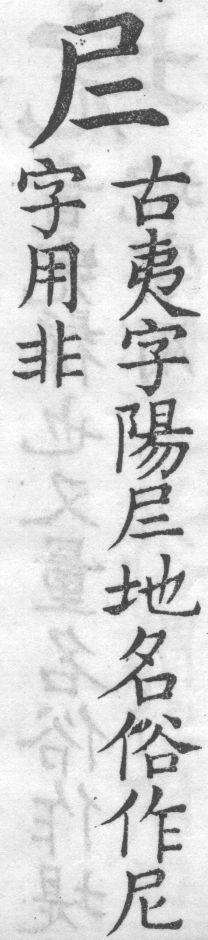 𡰥
古夷字陽𡰥地名俗作尼
字用非